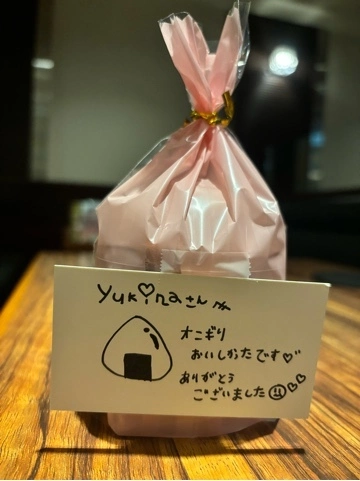 Yukinaさんへ
オニギリ
おいしかったです♡
ありがとう
ございました☺♡♡